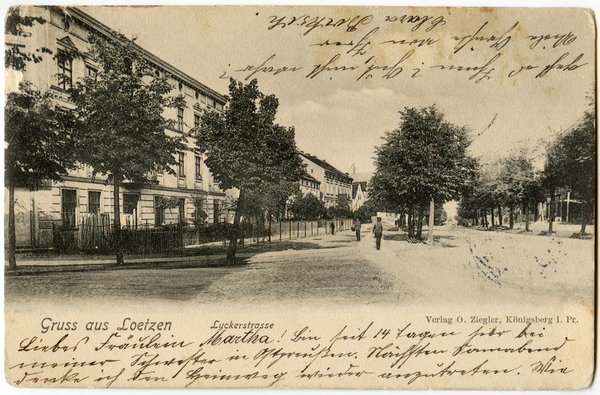 geht es Ihnen
Viele Grüße von Ihrer
Clara
Gruss aus Loetzen
Lyckerstrasse
Verlag O. Ziegler, Königsberg i. Pr.
Liebes Fräulein Martha! Bin seit 14 Tagen hier bei
meiner Schwester in Ostpreußen. Nächsten Sonnabend
denke ich den Heimweg wieder anzutreten. Wie